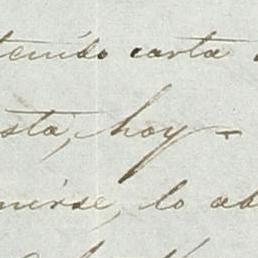 tenido carta
sta, hoy =
nirse, lo ab